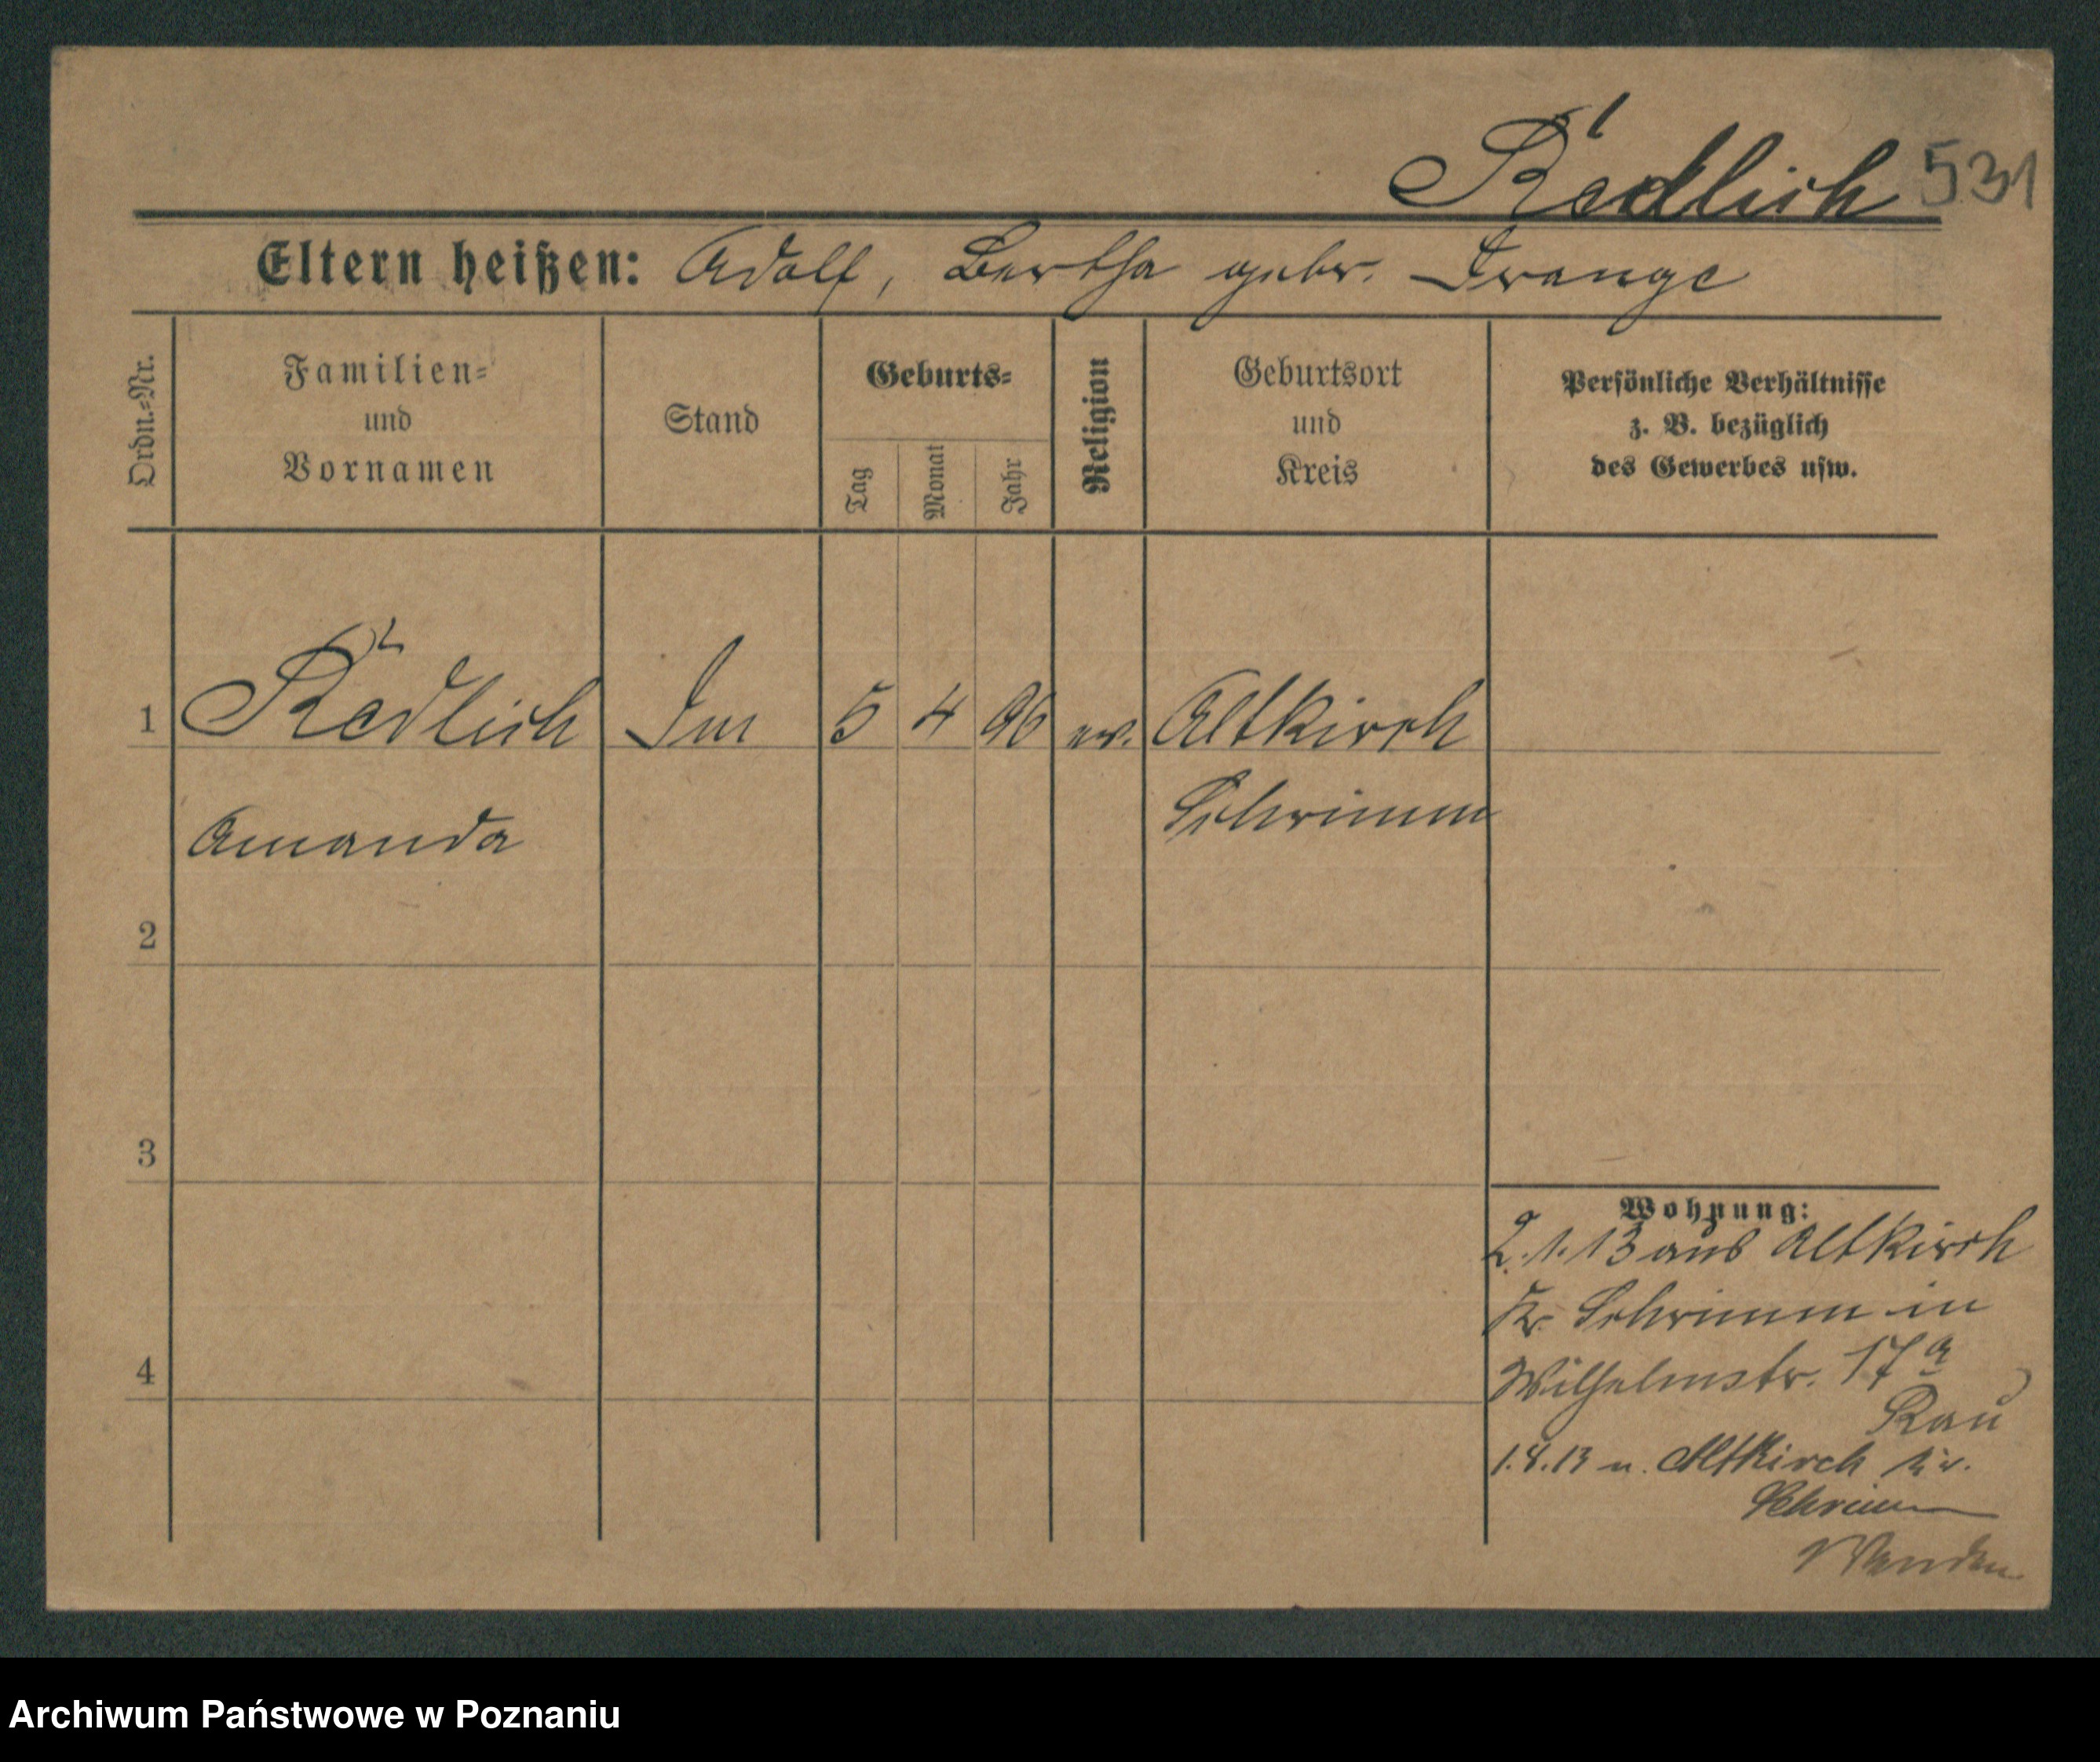 Redlich 531
Eltern heißen: Adolf, Bertha gebr. Drange
Ordn.-Nr.
Familien-
und
Vornamen
Stand
Geburts-
Tag
Monat
Jahr
Religion
Geburtsort
und
Kreis
Persönliche Verhältnisse
z. B. bezüglich
des Gewerbes usw.
1 Redlich 5 4 96 ev. Altkirch
Amanda Schrimm
2
3
4
Wohnung:
2.1.13 aus Altkirch
Kr. Schrimm in
Wilhelmstr. 17a
Rau
1.4.13 n. Altkirch Kr.
Schrimm
Wenden
Archiwum Państwowe w Poznaniu